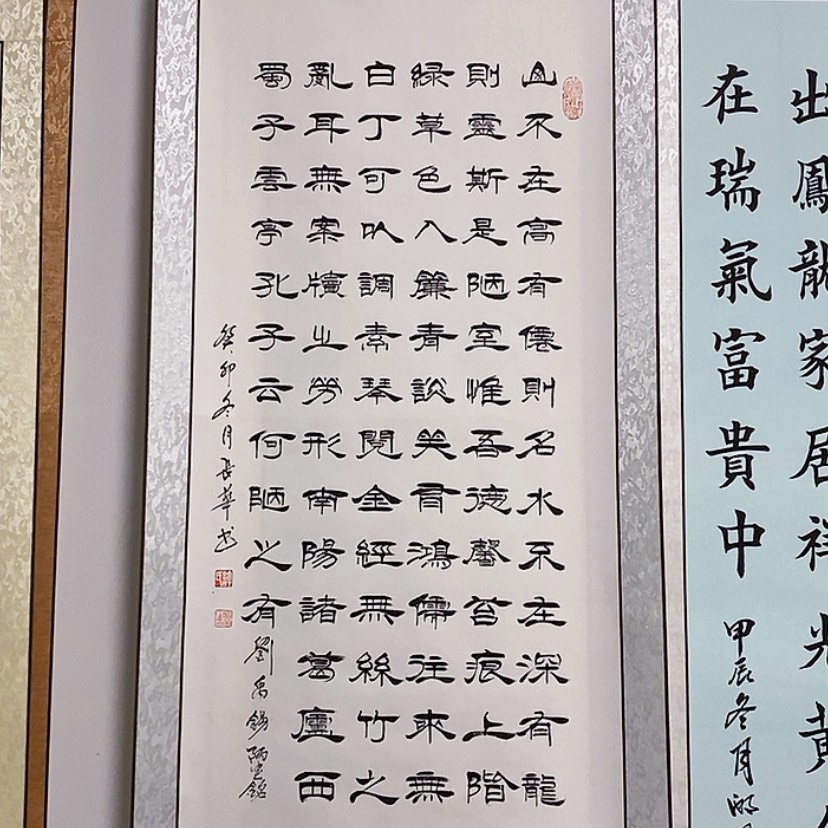 出鳳龍家居祥光黃
在瑞氣富貴中
甲辰冬月
山不在高有僊則名水不在深有龍
則靈斯是陋室惟吾德馨苔痕上階
綠草色入簾青談笑有鴻儒往來無
白丁可以調素琴閱金經無絲竹之
亂耳無案牘之勞形南陽諸葛廬西
蜀子雲亭孔子云何陋之有 劉禹錫陋室銘
癸卯冬月長華书